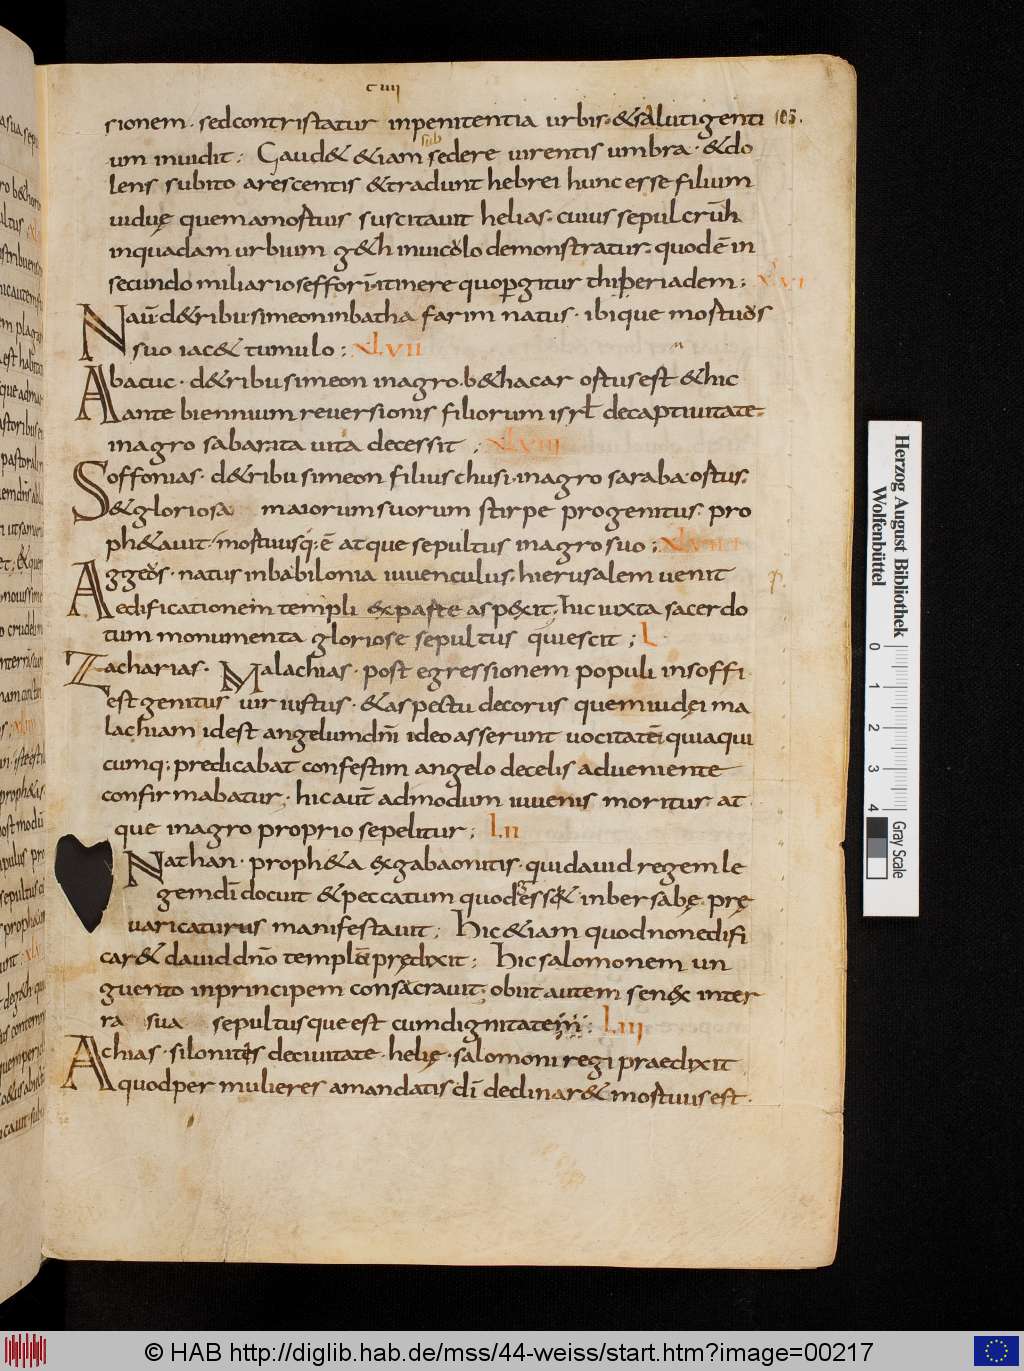 c iiii
sionem · sed contristatur in penitentia urbis · & saluti genti 103.
um inuidit : Gaud& &iam sub sedere uirentis umbra · & do
lens subito arescentis & tradunt hebrei hunc esse filium
uiduę quem a mortuis suscitauit helias · cuius sepulcrū h
in quadam urbium g&h in uiculo demonstratur · quod ē in
secundo miliario seffori · itinere quo pergitur thiberiadem : XLVI
Naū · de tribu simeon in batha farim natus · ibique mortuus
suo iac& tumulo : XLVII
Abacuc · de tribu simeon in agro b&hacar ortus est & hic
ante biennium reuersionis filiorum isrł de captiuitate
in agro sabarata uita decessit : XLVIII
Soffonias · de tribu simeon filius chusi · in agro saraba ortus ·
& gloriosa maiorum suorum stirpe progenitus · pro
ph&auit · mortuusq: ē atque sepultus in agro suo : XLVIIII
Aggeus · natus in babilonia iuuenculus · hierusalem uenit
aedificationem templi ex parte aspexit · hic iuxta sacerdo
tum monumenta gloriose sepultus quiescit ; L
Zacharias · Malachias · post egressionem populi in soffi
est genitus uir iustus · & aspectu decorus quem iudęi ma
lachiam id est angelum dn̄i ideo asserunt uocitatē quia qui
cumq: predicabat confestim angelo de celis adueniente
confirmabatur · hic aut̄ admodum iuuenis moritur · at
que in agro proprio sepelitur ; LII
Nathan · proph&a ex gabaonitis · qui dauid regem le
gem dī docuit & peccatum quod ess& in bersabę · prę
uaricaturus manifestauit ; Hic &iam quod non edifi
car& dauid dn̄o templū prędixit ; Hic salomonem un
guento in principem consacrauit · obiit autem senex in ter
ra sua sepultusque est cum dignitatem : LIII
Achias · silonites de ciuitate · helię · salomoni regi praedixit
quod per mulieres a mandatis dī declinar& mortuus est ·
Herzog August Bibliothek
Wolfenbüttel
0 1 2 3 4
Gray Scale
© HAB http://diglib.hab.de/mss/44-weiss/start.htm?image=00217